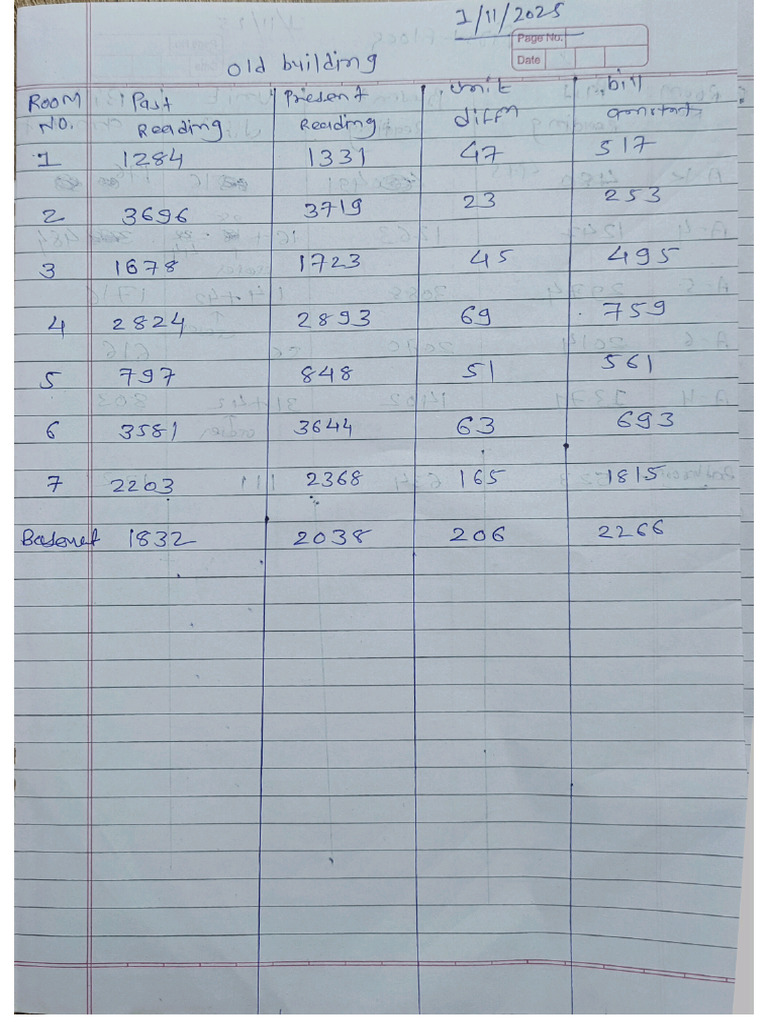 1/11/2025
Page No.
Date
old building
Room No. Past Reading Present Reading unit diffn bill amount
1 1284 1331 47 517
2 3696 3719 23 253
3 1678 1723 45 495
4 2824 2893 69 759
5 797 848 51 561
6 3581 3644 63 693
7 2203 2368 165 1815
Basemet 1832 2038 206 2266